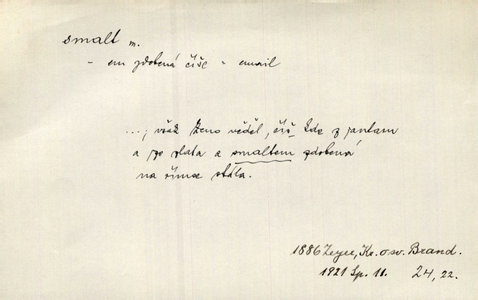 smalt m.
- em zdobená číše - email
...; však ženo věděl, číš, kde z jantam
a ze zlata a smaltem zdobená
na římse stála.
1886 Zeyer, Kr. o sv. Brand.
1921 Sp. 11. 24, 22.